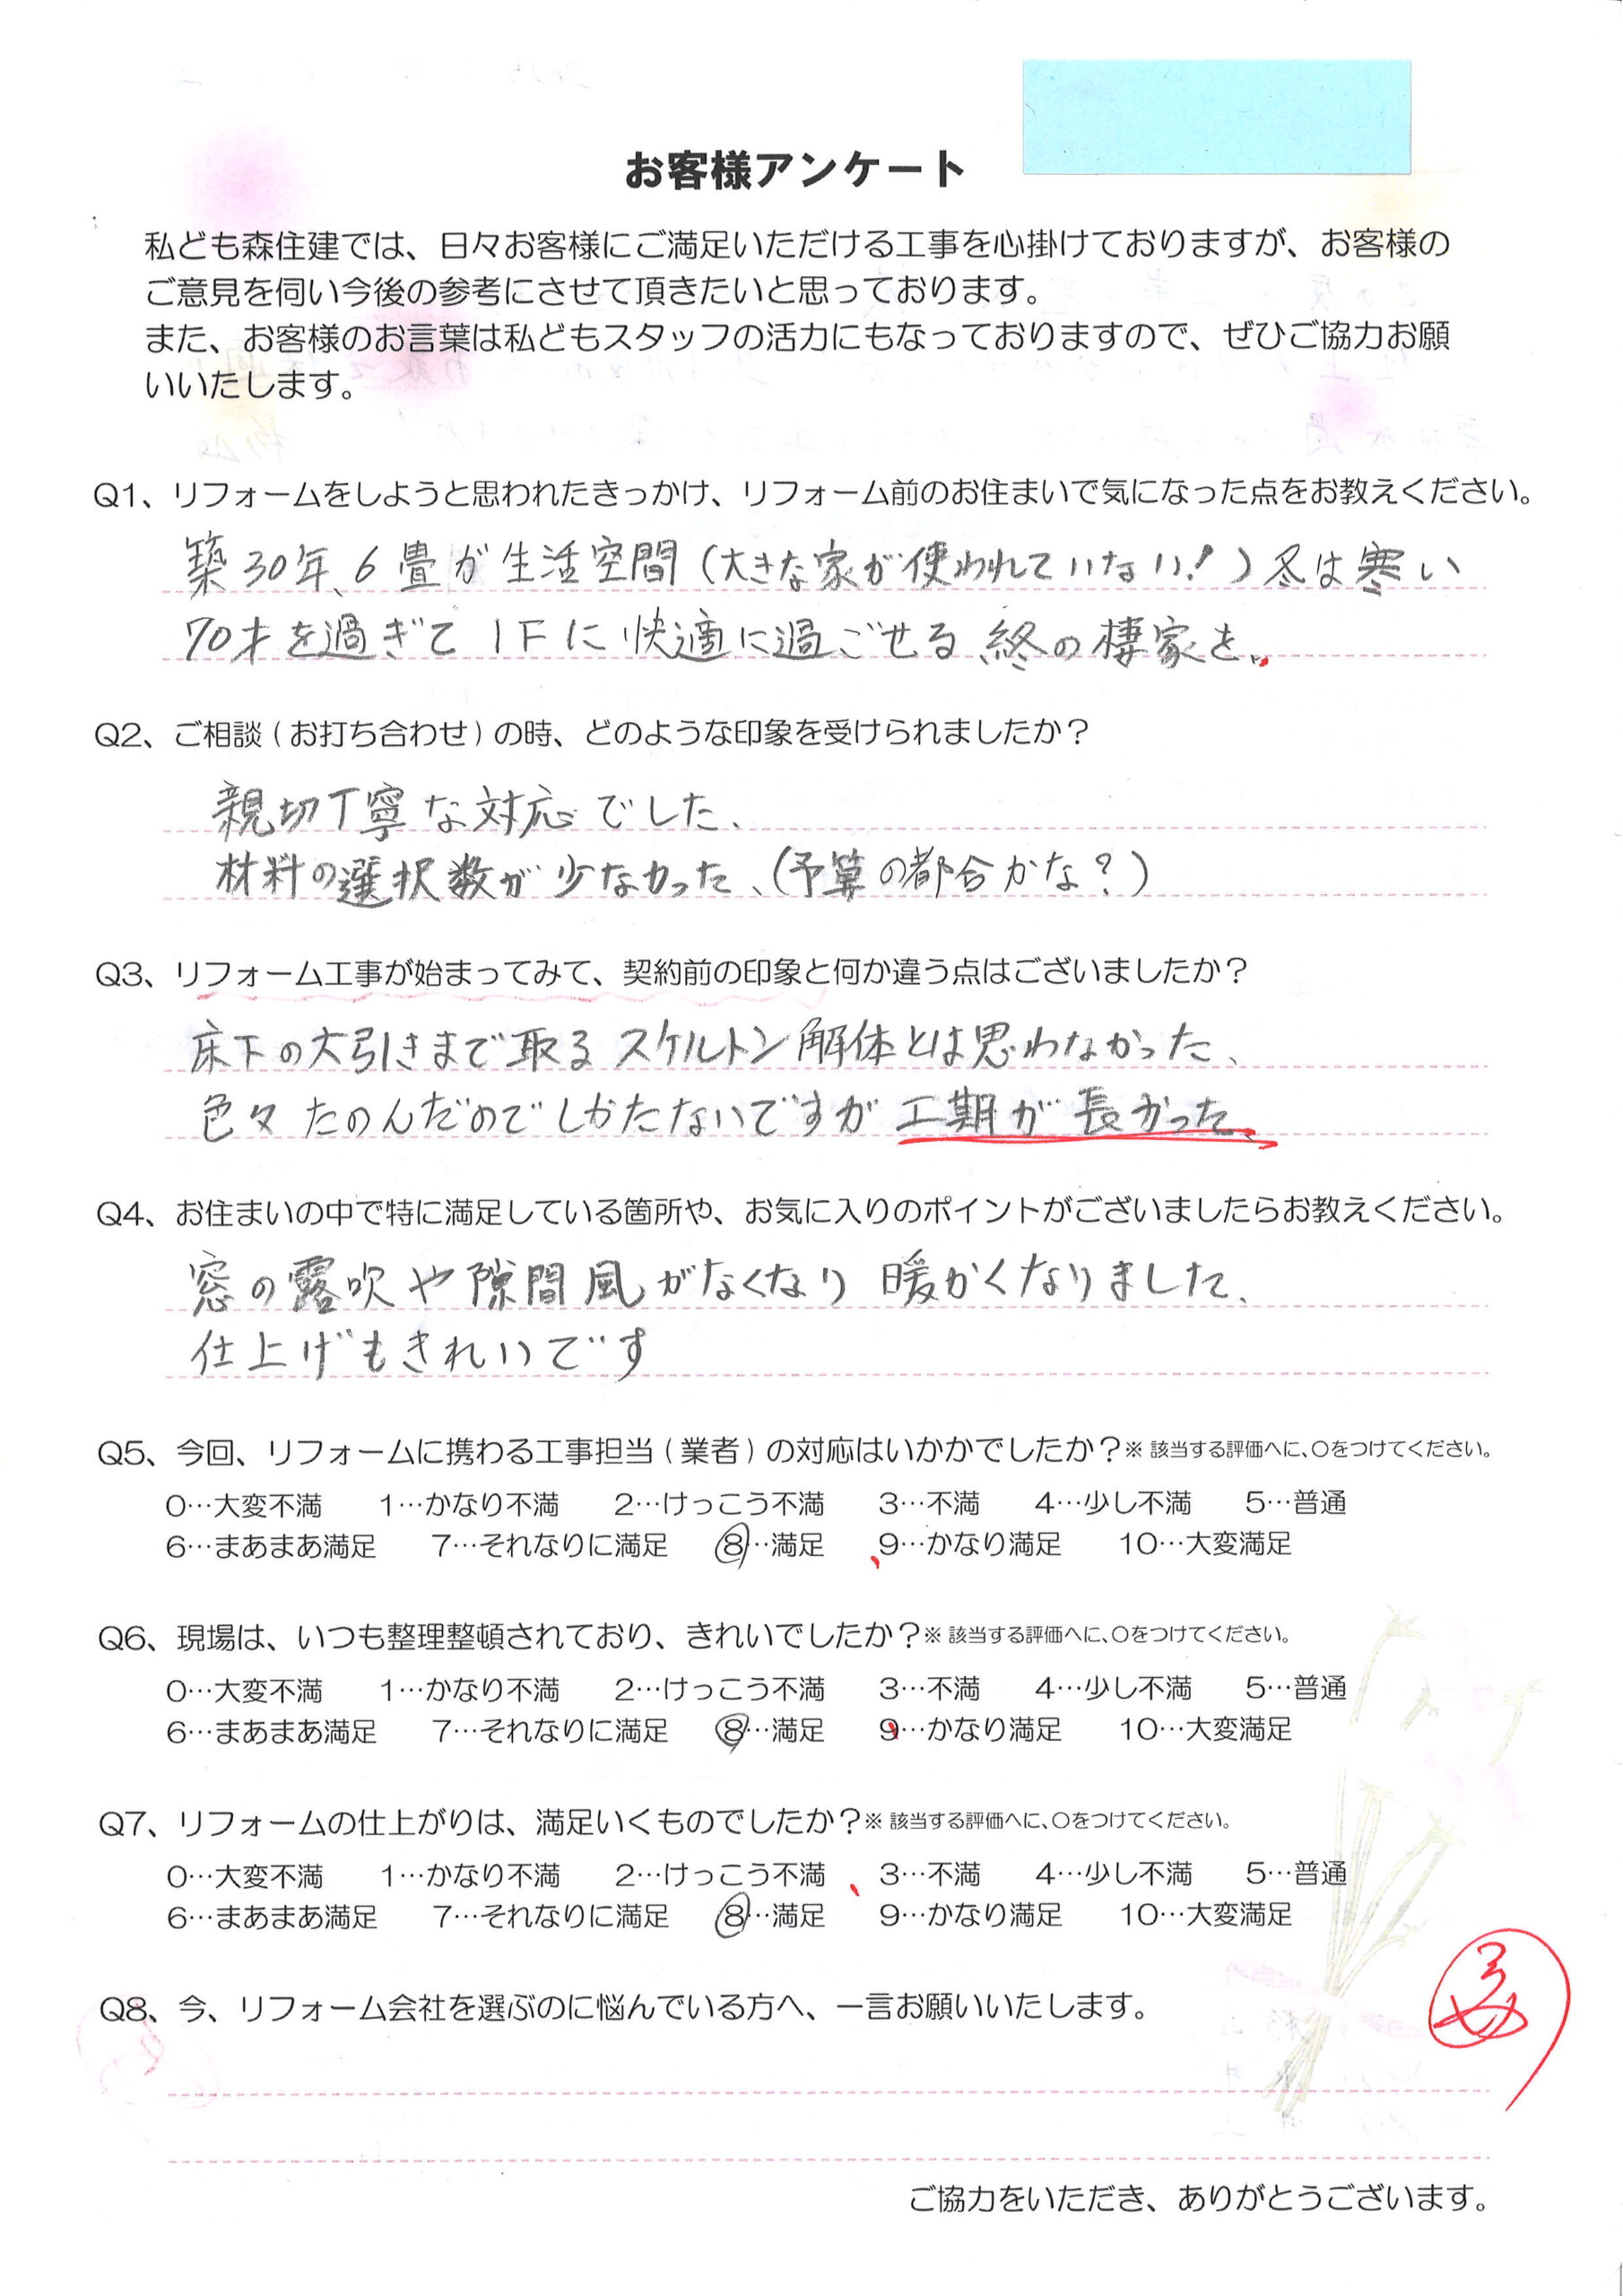 お客様アンケート
私ども森住建では、日々お客様にご満足いただける工事を心掛けておりますが、お客様の
ご意見を伺い今後の参考にさせて頂きたいと思っております。
また、お客様のお言葉は私どもスタッフの活力にもなっておりますので、ぜひご協力お願
いいたします。
Q1、リフォームをしようと思われたきっかけ、リフォーム前のお住まいで気になった点をお教えください。
築30年、6畳が生活空間(大きな家が使われていない!)冬は寒い
70才を過ぎて1Fに快適に過ごせる終の棲家を。
Q2、ご相談(お打ち合わせ)の時、どのような印象を受けられましたか?
親切丁寧な対応でした、
材料の選択数が少なかった、(予算の都合かな?)
Q3、リフォーム工事が始まってみて、契約前の印象と何か違う点はございましたか?
床下の大引きまで取るスケルトン解体とは思わなかった、
色々たのんだのでしかたないですが工期が長かった、
Q4、お住まいの中で特に満足している箇所や、お気に入りのポイントがございましたらお教えください。
窓の露吹や隙間風がなくなり暖かくなりました、
仕上げもきれいです
Q5、今回、リフォームに携わる工事担当(業者)の対応はいかかでしたか?※該当する評価へに、○をつけてください。
0…大変不満 1…かなり不満 2…けっこう不満 3…不満 4…少し不満 5…普通
6…まあまあ満足 7…それなりに満足 8…満足 9…かなり満足 10…大変満足
Q6、現場は、いつも整理整頓されており、きれいでしたか?※該当する評価へに、○をつけてください。
0…大変不満 1…かなり不満 2…けっこう不満 3…不満 4…少し不満 5…普通
6…まあまあ満足 7…それなりに満足 8…満足 9…かなり満足 10…大変満足
Q7、リフォームの仕上がりは、満足いくものでしたか?※該当する評価へに、○をつけてください。
0…大変不満 1…かなり不満 2…けっこう不満 3…不満 4…少し不満 5…普通
6…まあまあ満足 7…それなりに満足 8…満足 9…かなり満足 10…大変満足
Q8、今、リフォーム会社を選ぶのに悩んでいる方へ、一言お願いいたします。
ご協力をいただき、ありがとうございます。